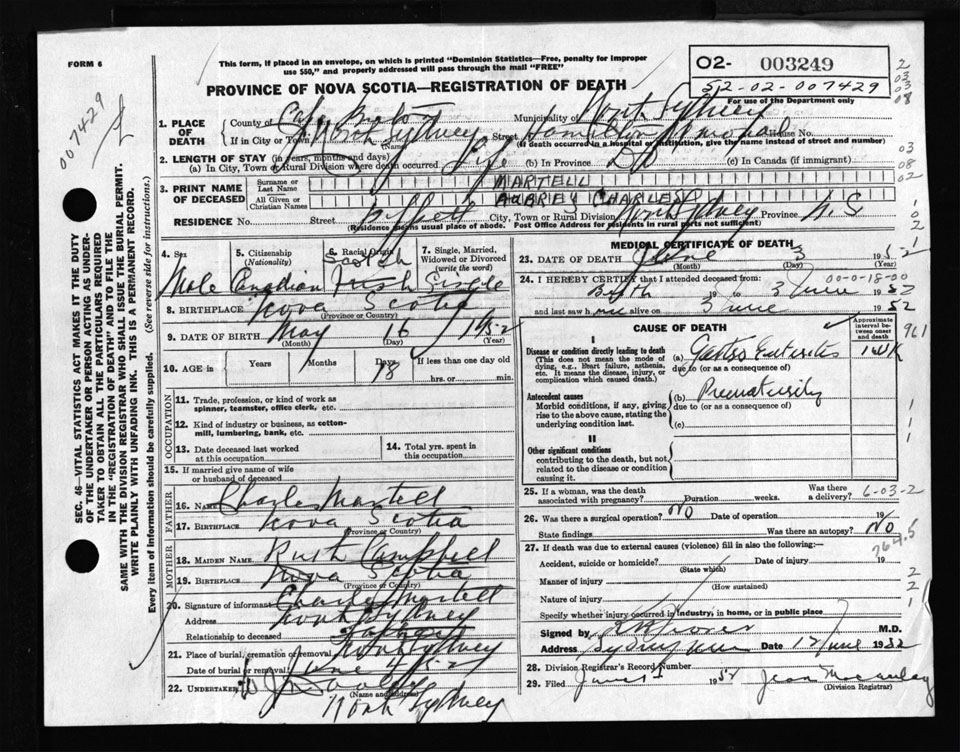 FORM 6
This form, if placed in an envelope, on which is printed "Dominion Statistics—Free, penalty for improper
use $50," and properly addressed will pass through the mail "FREE"
02- 003249
52-02-007429
For use of the Department only
PROVINCE OF NOVA SCOTIA—REGISTRATION OF DEATH
007429
SEC. 46—VITAL STATISTICS ACT MAKES IT THE DUTY
OF THE UNDERTAKER OR PERSON ACTING AS UNDER-
TAKER TO OBTAIN ALL THE PARTICULARS REQUIRED
IN THE "REGISTRATION OF DEATH" AND TO FILE THE
SAME WITH THE DIVISION REGISTRAR WHO SHALL ISSUE THE BURIAL PERMIT.
WRITE PLAINLY WITH UNFADING INK. THIS IS A PERMANENT RECORD.
Every item of information should be carefully supplied. (See reverse side for instructions.)
1. PLACE OF DEATH
County of Cape Breton Municipality of North Sydney
If in City or Town North Sydney (Name) Street Hamilton Memorial House No.
(If death occurred in a hospital or institution, give the name instead of street and number)
2. LENGTH OF STAY (in years, months and days)
(a) In City, Town or Rural Division where death occurred Life (b) In Province (c) In Canada (if immigrant)
3. PRINT NAME OF DECEASED
Surname or Last Name MARTELL
All Given or Christian Names AUBREY CHARLES
RESIDENCE No. Street City, Town or Rural Division North Sydney Province N.S.
(Residence means usual place of abode. Post Office Address for residents in rural parts not sufficient)
4. Sex
Male
5. Citizenship (Nationality)
Canadian
6. Racial Origin
Scotch
Irish
7. Single, Married, Widowed or Divorced (write the word)
Single
8. BIRTHPLACE Nova Scotia
(Province or Country)
9. DATE OF BIRTH May 16 1952
(Month) (Day) (Year)
10. AGE in Years Months Days 18 If less than one day old
hrs. or min.
OCCUPATION
11. Trade, profession, or kind of work as spinner, teamster, office clerk, etc.
12. Kind of industry or business, as cotton-mill, lumbering, bank, etc.
13. Date deceased last worked at this occupation
14. Total yrs. spent in this occupation
15. If married give name of wife or husband of deceased
FATHER
16. NAME Charles Martell
17. BIRTHPLACE Nova Scotia
(Province or Country)
MOTHER
18. MAIDEN NAME Ruth Campbell
19. BIRTHPLACE Nova Scotia
(Province of Country)
20. Signature of informant Charles Martell
Address North Sydney
Relationship to deceased Father
21. Place of burial, cremation or removal North Sydney
Date of burial or removal June 4 1952
22. UNDERTAKER
(Name and address)
North Sydney
MEDICAL CERTIFICATE OF DEATH
23. DATE OF DEATH June 3 1952
(Month) (Day) (Year)
24. I HEREBY CERTIFY that I attended deceased from: 00-0-18-00
Birth to 3 June 1952
and last saw him alive on 3 June 1952
CAUSE OF DEATH
Approximate interval between onset and death
961
I
Disease or condition directly leading to death
(This does not mean the mode of dying, e.g., Heart failure, asthenia, etc. It means the disease, injury, or complication which caused death.)
(a) Gastro Enteritis 1 wk
due to (or as a consequence of)
Antecedent causes
Morbid conditions, if any, giving rise to the above cause, stating the underlying condition last.
(b) Prematurity
due to (or as a consequence of)
(c)
II
Other significant conditions
contributing to the death, but not related to the disease or condition causing it.
25. If a woman, was the death associated with pregnancy? Duration weeks. Was there a delivery? 6-03-2
26. Was there a surgical operation? NO Date of operation 19
State findings Was there an autopsy? NO
764.5
27. If death was due to external causes (violence) fill in also the following:—
Accident, suicide or homicide? Date of injury 19
(State which)
Manner of injury
(How sustained)
Nature of injury
Specify whether injury occurred in industry, in home, or in public place
Signed by M.D.
Address Sydney Mines Date 12 June 1952
28. Division Registrar's Record Number
29. Filed 1952 Jean McCaulay
(Division Registrar)